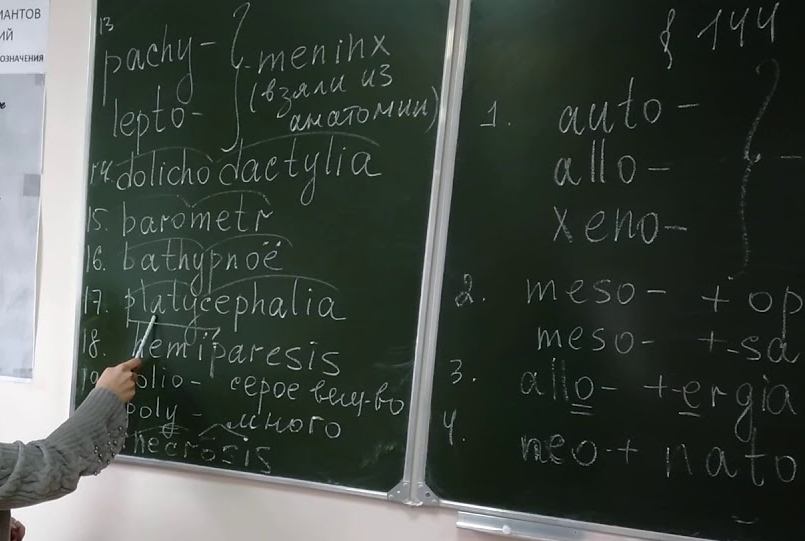 МАНТОВ
ИЙ
ОЗНАЧЕНИЯ
13
pachy- } meninx
lepto- (взяли из анатомии)
14. dolichodactylia
15. barometr
16. bathypnoë
17. platycephalia
18. hemiparesis
19. polio- серое вещ-во
poly - много
necrosis
§ 144
1. auto-
allo-
xeno-
} -
2. meso- + op
meso- + sa
3. allo- + ergia
4. neo + nato